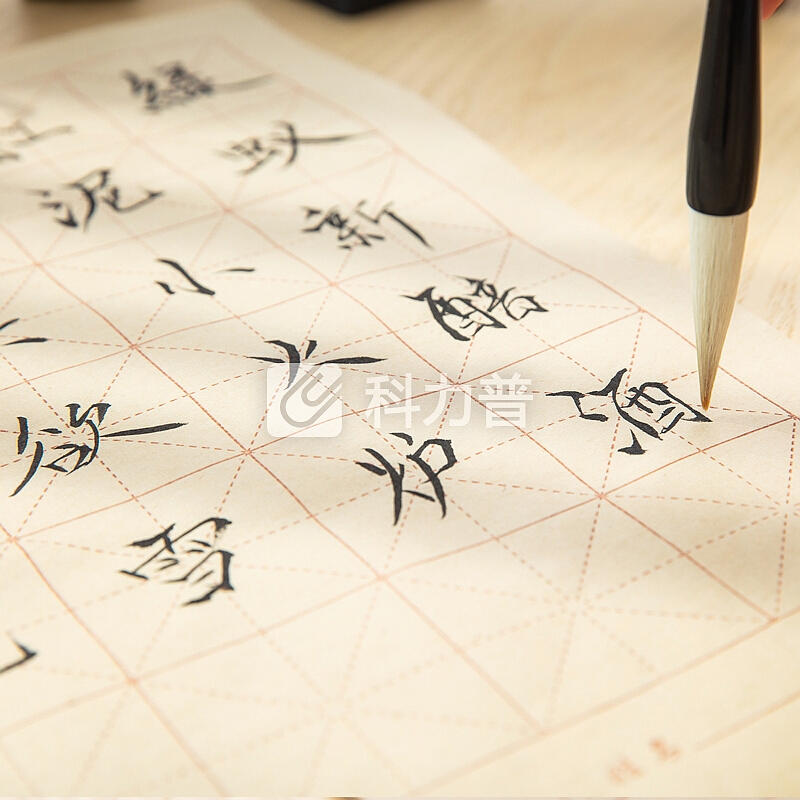 绿蚁新醅酒
泥小火炉
欲雪
科力普